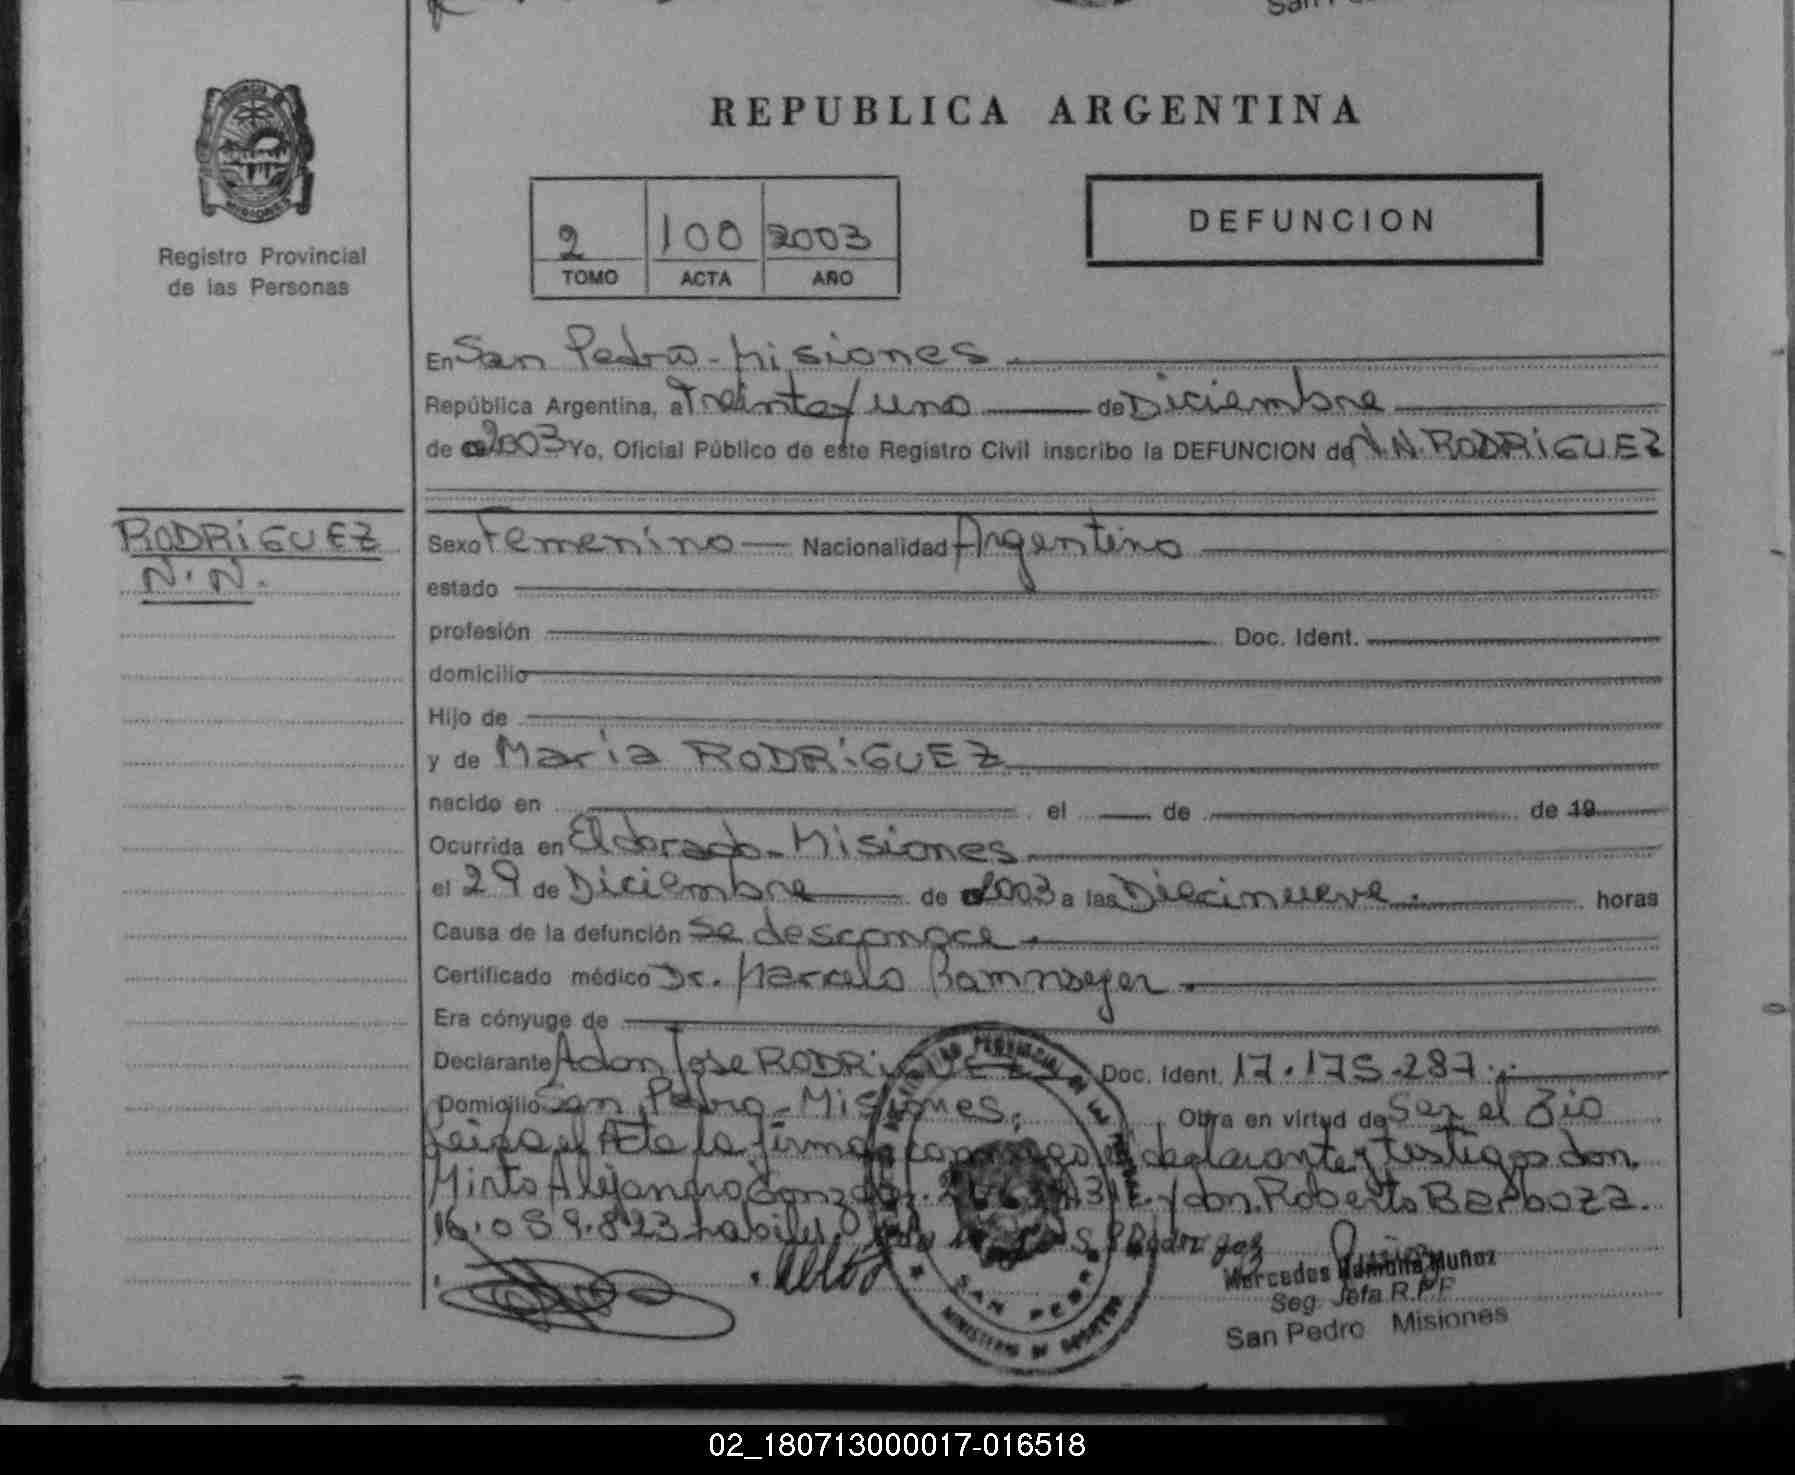 San Pe
REPUBLICA ARGENTINA
PROVINCIA
MISIONES
Registro Provincial
de las Personas
2 100 2003
TOMO ACTA AÑO
DEFUNCION
En San Pedro - Misiones
República Argentina, a Treinta y uno de Diciembre
de 2003 Yo, Oficial Público de este Registro Civil inscribo la DEFUNCION de N.N. RODRIGUEZ
RODRIGUEZ
N.N.
Sexo Femenino Nacionalidad Argentino
estado
profesión Doc. Ident.
domicilio
Hijo de
y de Maria RODRIGUEZ
nacido en el de de 19
Ocurrida en Eldorado - Misiones
el 29 de Diciembre de 2003 a las Diecinueve. horas
Causa de la defunción se desconoce.
Certificado médico Dr. Marcelo
Era cónyuge de
Declarante Adan Jose RODRIGUEZ Doc. Ident. 17.175.287
Domicilio San Pedro - Misiones. Obra en virtud de ser el Tio
Leida el Acta la firman conmigo el declarante y testigos don
Mirto Alejandro y don Roberto Barboza.
16.059.823 habiles
Rodriguez
Mercedes Ramona Muñoz
Seg. Jefa R.P.P.
San Pedro Misiones
SAN PEDRO
MINISTERIO DE GOBIERNO
02_180713000017-016518